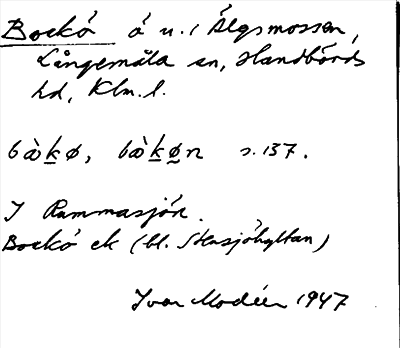 Bockö ö n. i Älgsmossen,
Långemåla sn, Handbörds
hd, Klm. l.
bàkø, bàkøn s. 137.
I Rammasjön.
Bockö ek (bl. Stensjöhyltan)
Ivar Modéer 1947